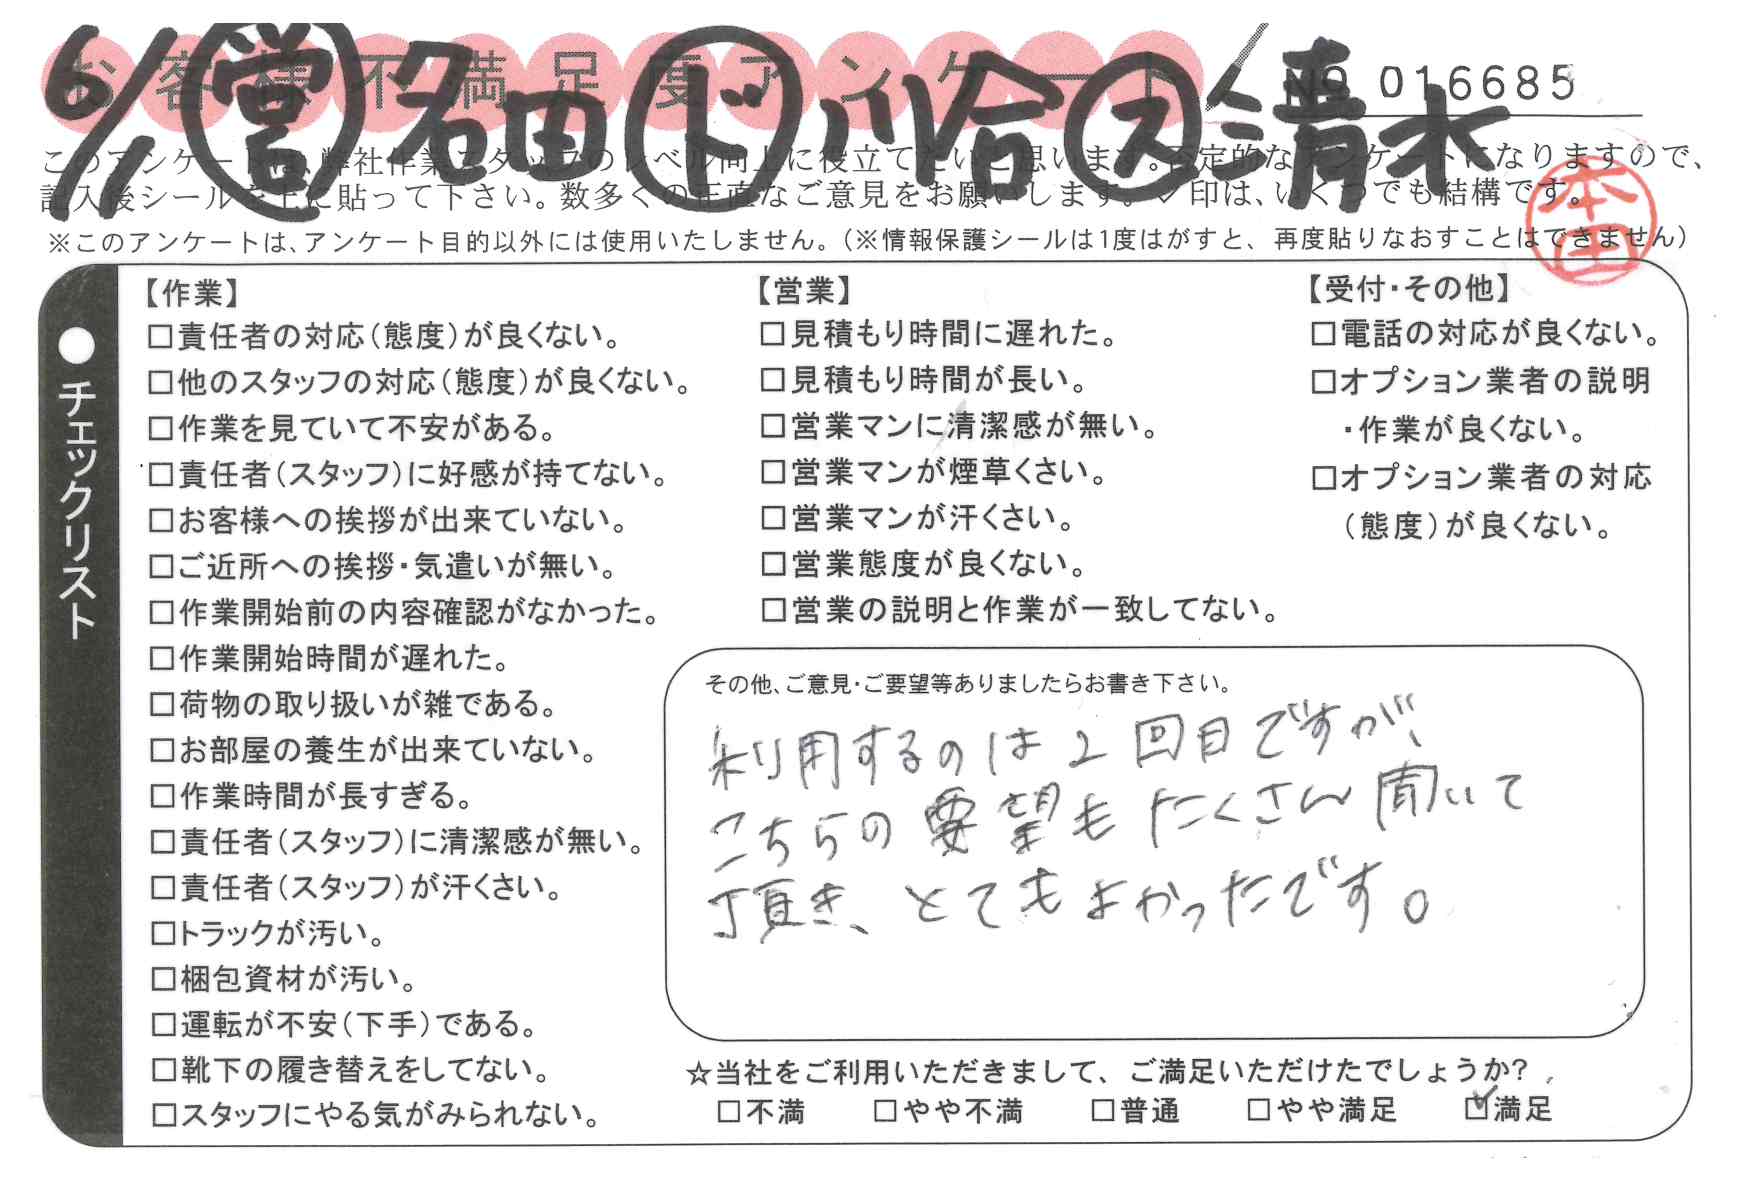 お客様不満足度アンケート
NO 016685
6/1 営 名田 ド 川合 ス 清水
このアンケートは、弊社作業スタッフのレベル向上に役立てたいと思います。否定的なアンケートになりますので、
記入後シールを上に貼って下さい。数多くの正直なご意見をお願いします。✓印は、いくつでも結構です。
本田
※このアンケートは、アンケート目的以外には使用いたしません。(※情報保護シールは1度はがすと、再度貼りなおすことはできません)
●チェックリスト
【作業】
□責任者の対応(態度)が良くない。
□他のスタッフの対応(態度)が良くない。
□作業を見ていて不安がある。
□責任者(スタッフ)に好感が持てない。
□お客様への挨拶が出来ていない。
□ご近所への挨拶・気遣いが無い。
□作業開始前の内容確認がなかった。
□作業開始時間が遅れた。
□荷物の取り扱いが雑である。
□お部屋の養生が出来ていない。
□作業時間が長すぎる。
□責任者(スタッフ)に清潔感が無い。
□責任者(スタッフ)が汗くさい。
□トラックが汚い。
□梱包資材が汚い。
□運転が不安(下手)である。
□靴下の履き替えをしてない。
□スタッフにやる気がみられない。
【営業】
□見積もり時間に遅れた。
□見積もり時間が長い。
□営業マンに清潔感が無い。
□営業マンが煙草くさい。
□営業マンが汗くさい。
□営業態度が良くない。
□営業の説明と作業が一致してない。
【受付・その他】
□電話の対応が良くない。
□オプション業者の説明
・作業が良くない。
□オプション業者の対応
(態度)が良くない。
その他、ご意見・ご要望等ありましたらお書き下さい。
利用するのは2回目ですが、
こちらの要望もたくさん聞いて
頂き、とてもよかったです。
☆当社をご利用いただきまして、ご満足いただけたでしょうか?
□不満 □やや不満 □普通 □やや満足 ☑満足